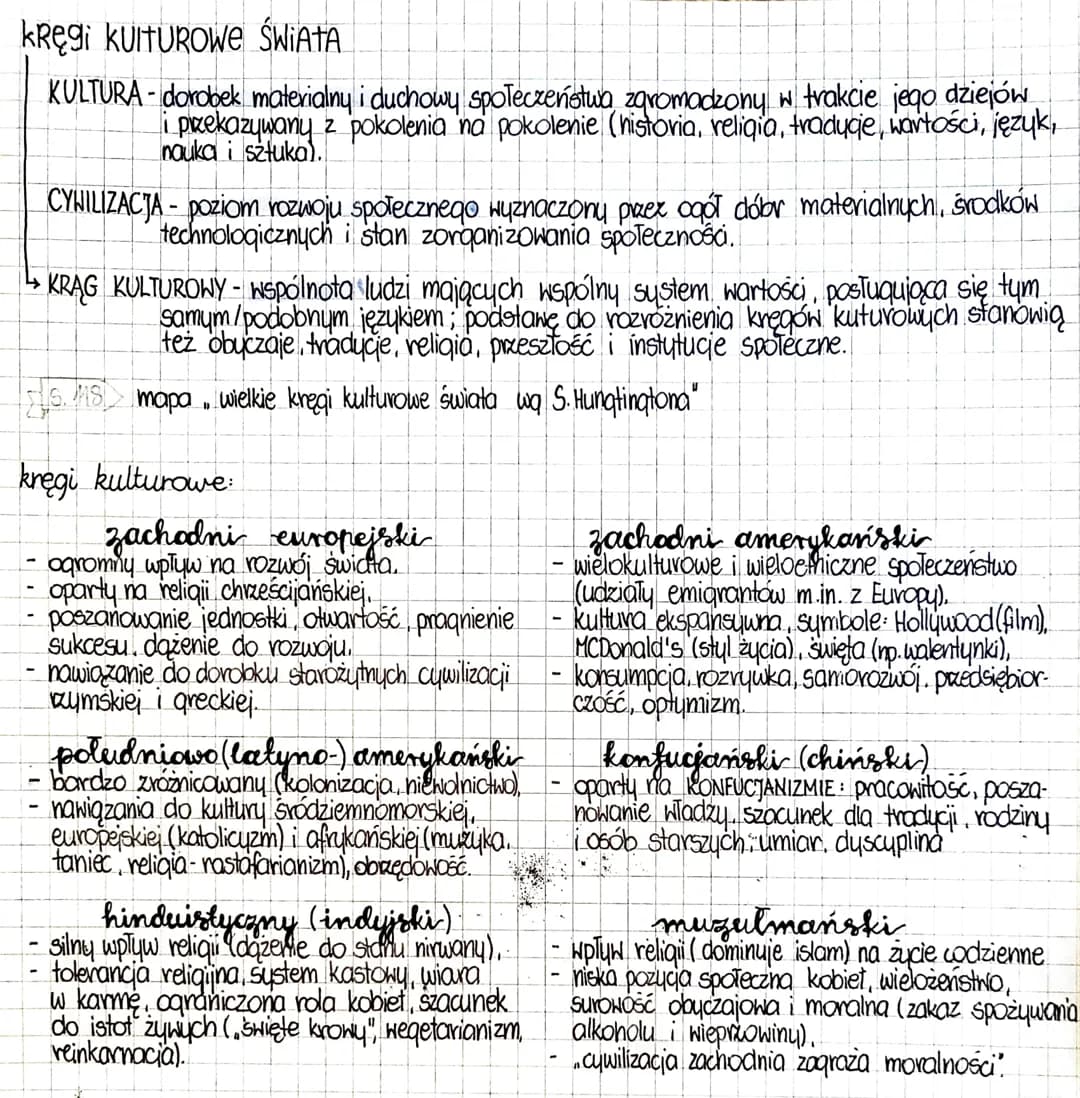 kRęgi kUlTUROWe ŚWiATA
KULTURA - dorobek materialny i duchowy społeczeństwa zgromadzony w trakcie jego dziejów
i przekazywany z pokolenia na pokolenie (historia, religia, tradycje, wartości, język,
nauka i sztuka).
CYWILIZACJA - poziom rozwoju społecznego wyznaczony przez ogół dóbr materialnych, środków
technologicznych i stan zorganizowania społeczności.
↳ KRĄG KULTUROWY - wspólnota ludzi mających wspólny system wartości, posługująca się tym
samym/podobnym językiem; podstawę do rozróżnienia kręgów kuturowych stanowią
też obyczaje, tradycje, religia, przeszłość i instytucje społeczne.
s. 118 mapa „wielkie kręgi kulturowe świata wg S. Hungtingtona"
kręgi kulturowe:
zachodni europejski
- ogromny wpływ na rozwój świata.
- oparty na religii chrześcijańskiej.
- poszanowanie jednostki, otwartość, pragnienie
sukcesu, dążenie do rozwoju.
- nawiązanie do dorobku starożytnych cywilizacji
rzymskiej i greckiej.
zachodni amerykański
- wielokulturowe i wieloetniczne społeczeństwo
(udziały emigrantów m.in. z Europy).
- kultura ekspansywna, symbole: Hollywood (film),
MCDonald's (styl życia), święta (np. walentynki),
- konsumpcja, rozrywka, samorozwój, przedsiębior-
czość, optymizm.
południowo (latyno-) amerykański
- bardzo zróżnicowany (kolonizacja, niewolnictwo),
- nawiązania do kultury śródziemnomorskiej,
europejskiej (katolicyzm) i afrykańskiej (muzyka,
taniec, religia - rastafarianizm), obrzędowość.
konfucjański (chiński)
- oparty na KONFUCJANIZMIE: pracowitość, posza-
nowanie władzy, szacunek dla tradycji, rodziny
i osób starszych; umiar, dyscyplina
hinduistyczny (indyjski)
- silny wpływ religii (dążenie do stanu nirwany),
- tolerancja religijna, system kastowy, wiara
w karmę, ograniczona rola kobiet, szacunek
do istot żywych („święte krowy", wegetarianizm,
reinkarnacja).
muzułmański
- wpływ religii (dominuje islam) na życie codzienne
- niska pozycja społeczna kobiet, wielożeństwo,
surowość obyczajowa i moralna (zakaz spożywania
alkoholu i wieprzowiny),
- „cywilizacja zachodnia zagraża moralności".